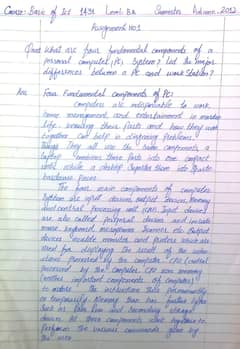 Course: Basic of Ict 1431 Level: BA Semester Autumn, 2012
Assignment No.1
Q.no.1 what are four fundamental components of a
personal computer (PC) System? List the major
differences between a PC and work station?
Ans Four Fundamental components of PC:
Computers are indispensible to work
home management and entertainment in modern
life. knowing their parts and how they work
together can help in diagnosing problems.
Things They all use the same components, a
laptop combines these parts into one compact
unit while a desktop separates them into
hardware pieces.
The four main components of computer
System are input devices, output devices, Memory
and central processing unit (CPU). Input devices
are also called peripheral devices and include
mouse, keyboard, microphone, scanner etc. Output
devices include monitor and printers which are
used for displaying the result of the
given processed by the computer. CPU (central
processed by the computer. CPU
important components of computer)
to store the instruction data permanently
or temporarily. Memory has two further types
such as Ram, Rom and Secondary storage
devices. All these components work together to
perform the various commands given by
the user.